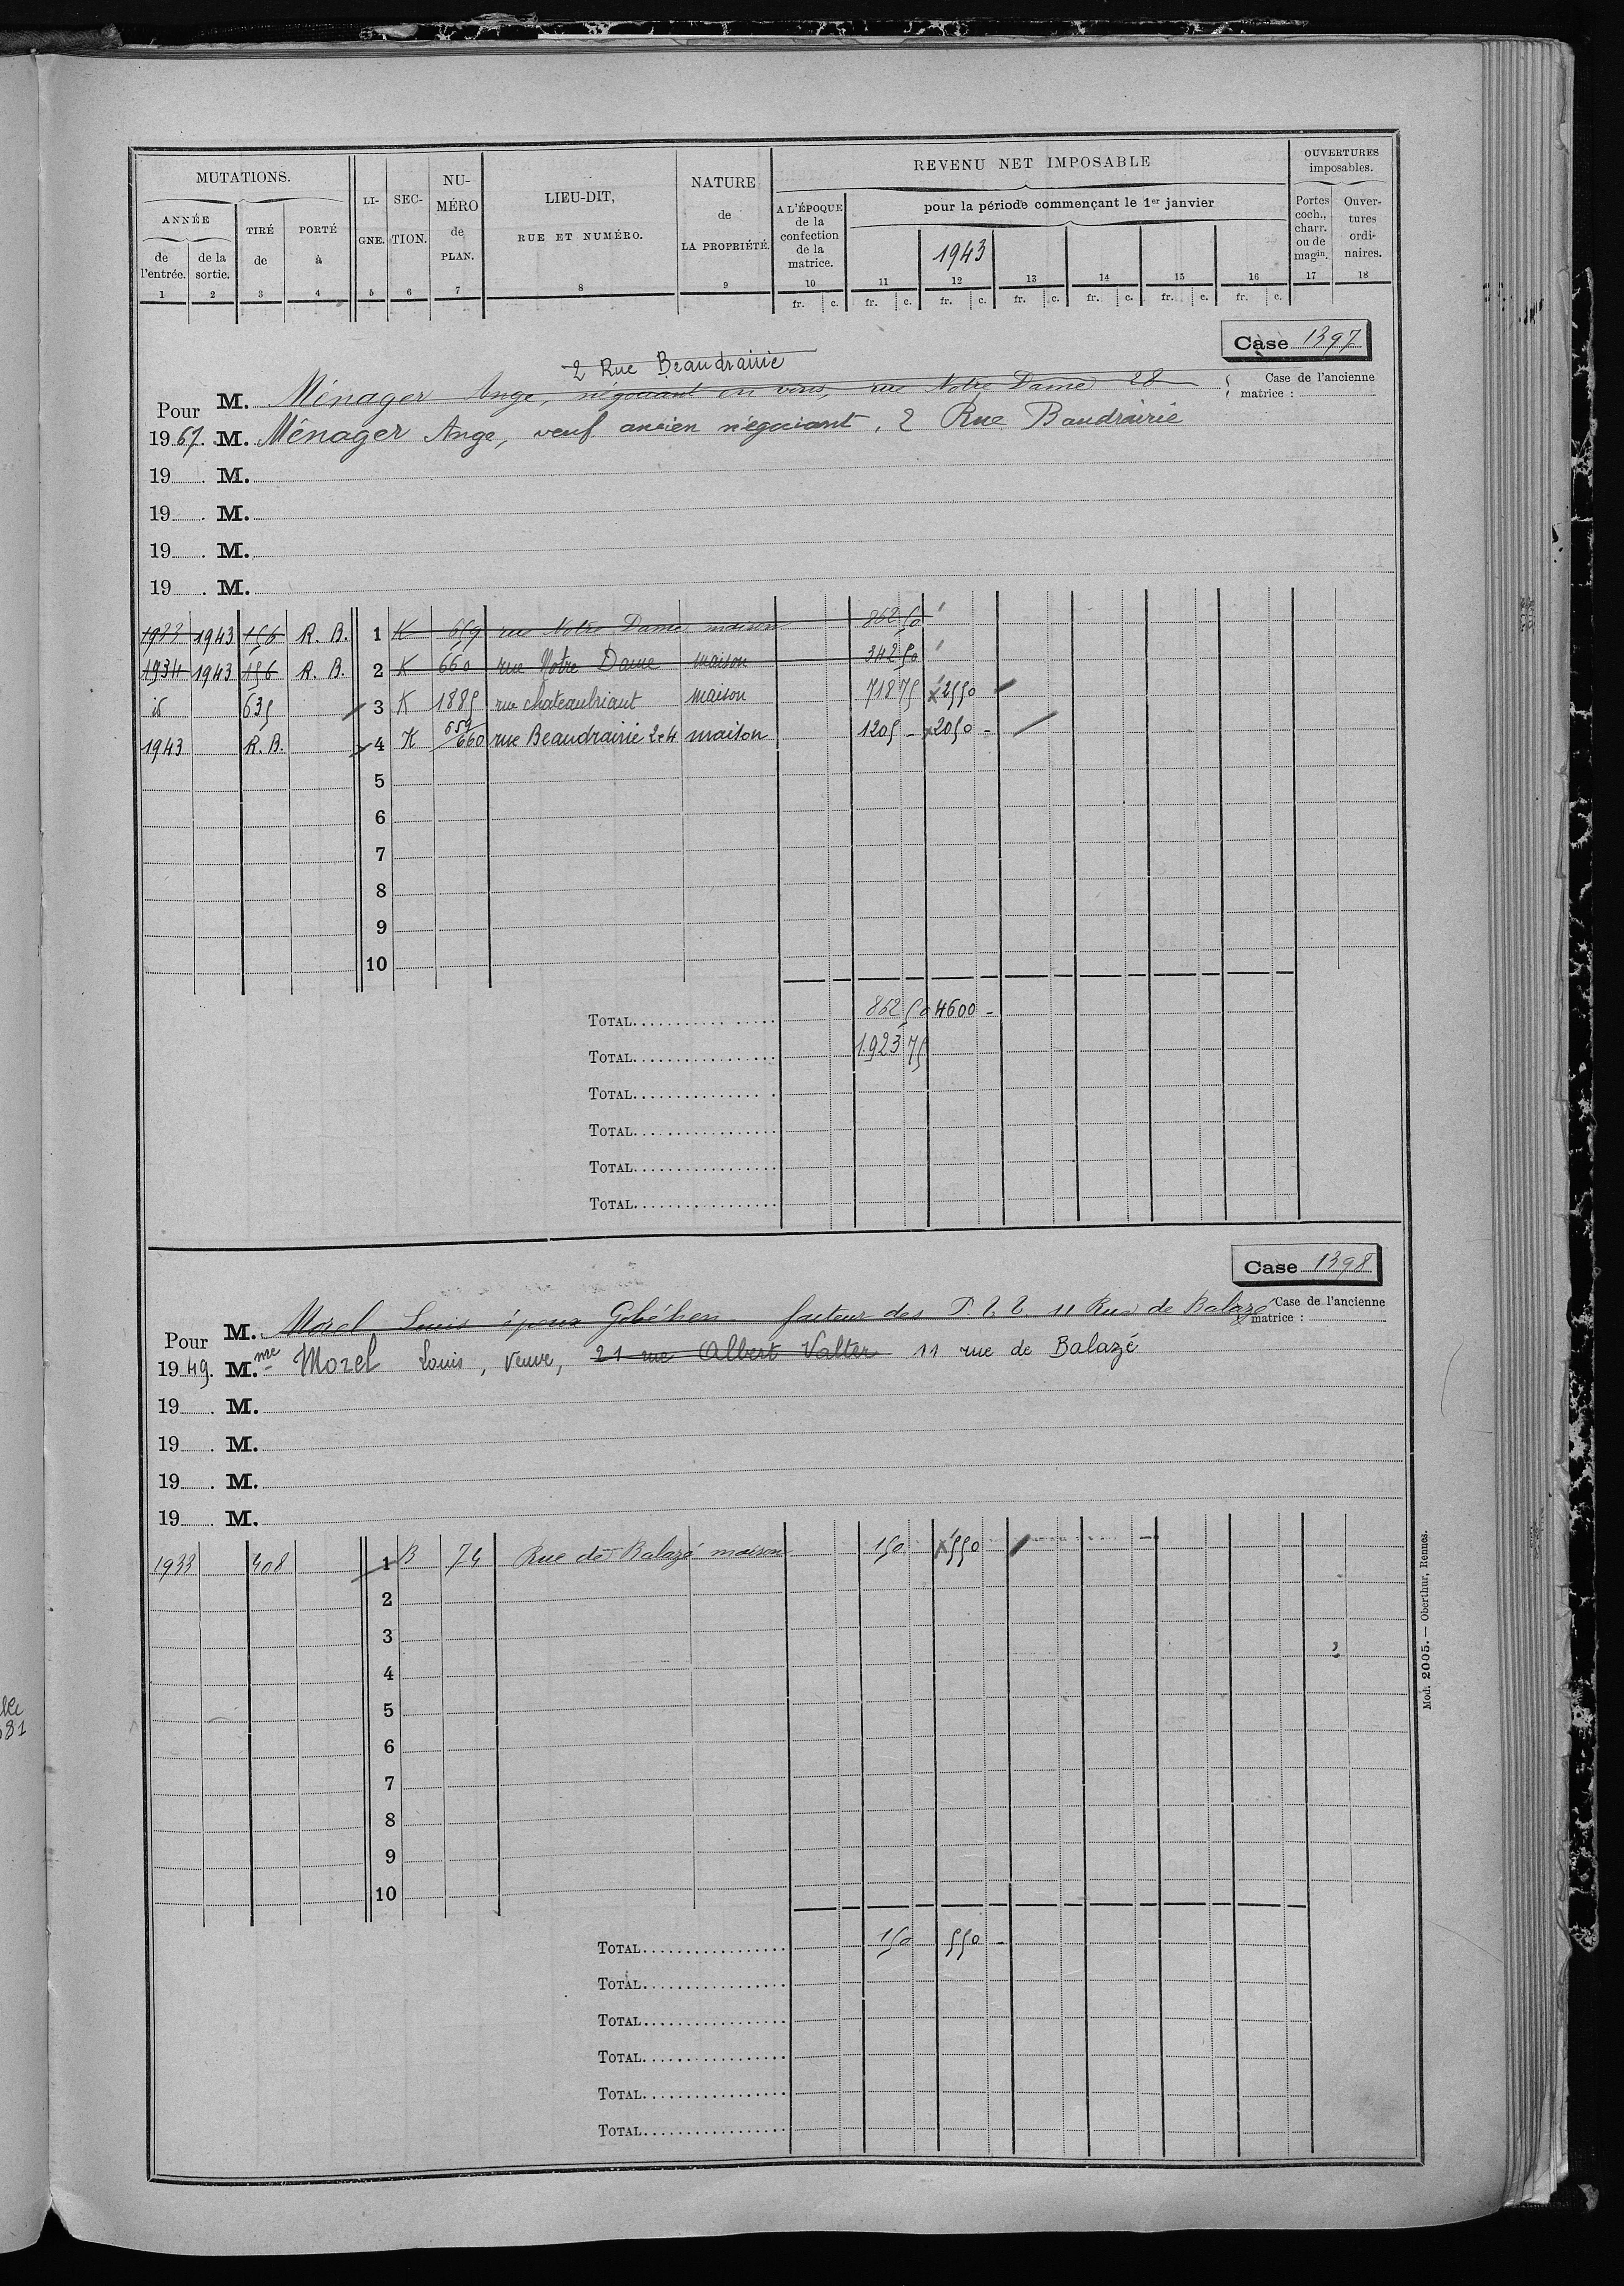 MUTATIONS.
ANNÉE
de l'entrée.
de la sortie.
TIRÉ de
PORTÉ à
LIGNE.
SECTION.
NUMÉRO de PLAN.
LIEU-DIT,
RUE ET NUMÉRO.
NATURE de LA PROPRIÉTÉ.
REVENU NET IMPOSABLE
A L'ÉPOQUE de la confection de la matrice.
pour la période commençant le 1er janvier
1943
OUVERTURES imposables.
Portes coch., charr. ou de magin.
Ouvertures ordinaires.
1 2 3 4 5 6 7 8 9 10 11 12 13 14 15 16 17 18
fr. c. fr. c. fr. c. fr. c. fr. c. fr. c. fr. c.
Case 1397
2 Rue Beaudrairie
Case de l'ancienne matrice :
M. Ménager Ange, négociant en vins, rue Notre Dame 28
Pour
1967. M. Ménager Ange, veuf ancien négociant, 2 Rue Baudrairie
19 . M.
19 . M.
19 . M.
19 . M.
1933 1943 156 R. B. 1 K 659 rue Notre Dame maison 862 50
1934 1943 156 R. B. 2 K 660 rue Notre Dame maison 342 50
id 635 3 K 1885 rue chateaubriant maison 718 75 2550
1943 R. B. 4 K 659/660 rue Beaudrairie 2 et 4 maison 1205 - 2050 -
5
6
7
8
9
10
TOTAL 862 50 4600 -
TOTAL 1.923 75
TOTAL
TOTAL
TOTAL
TOTAL
Case 1398
Case de l'ancienne matrice :
M. Morel Louis époux Gobéhen facteur des P.T.T 11 Rue de Balazé
Pour
1949. Mme Morel Louis, Veuve, 21 rue Albert Valter 11 rue de Balazé
19 . M.
19 . M.
19 . M.
19 . M.
1933 408 1 B 74 Rue de Balazé maison 150 550
2
3
4
5
6
7
8
9
10
TOTAL 150 550 -
TOTAL
TOTAL
TOTAL
TOTAL
TOTAL
Mod. 2005. — Oberthur, Rennes.